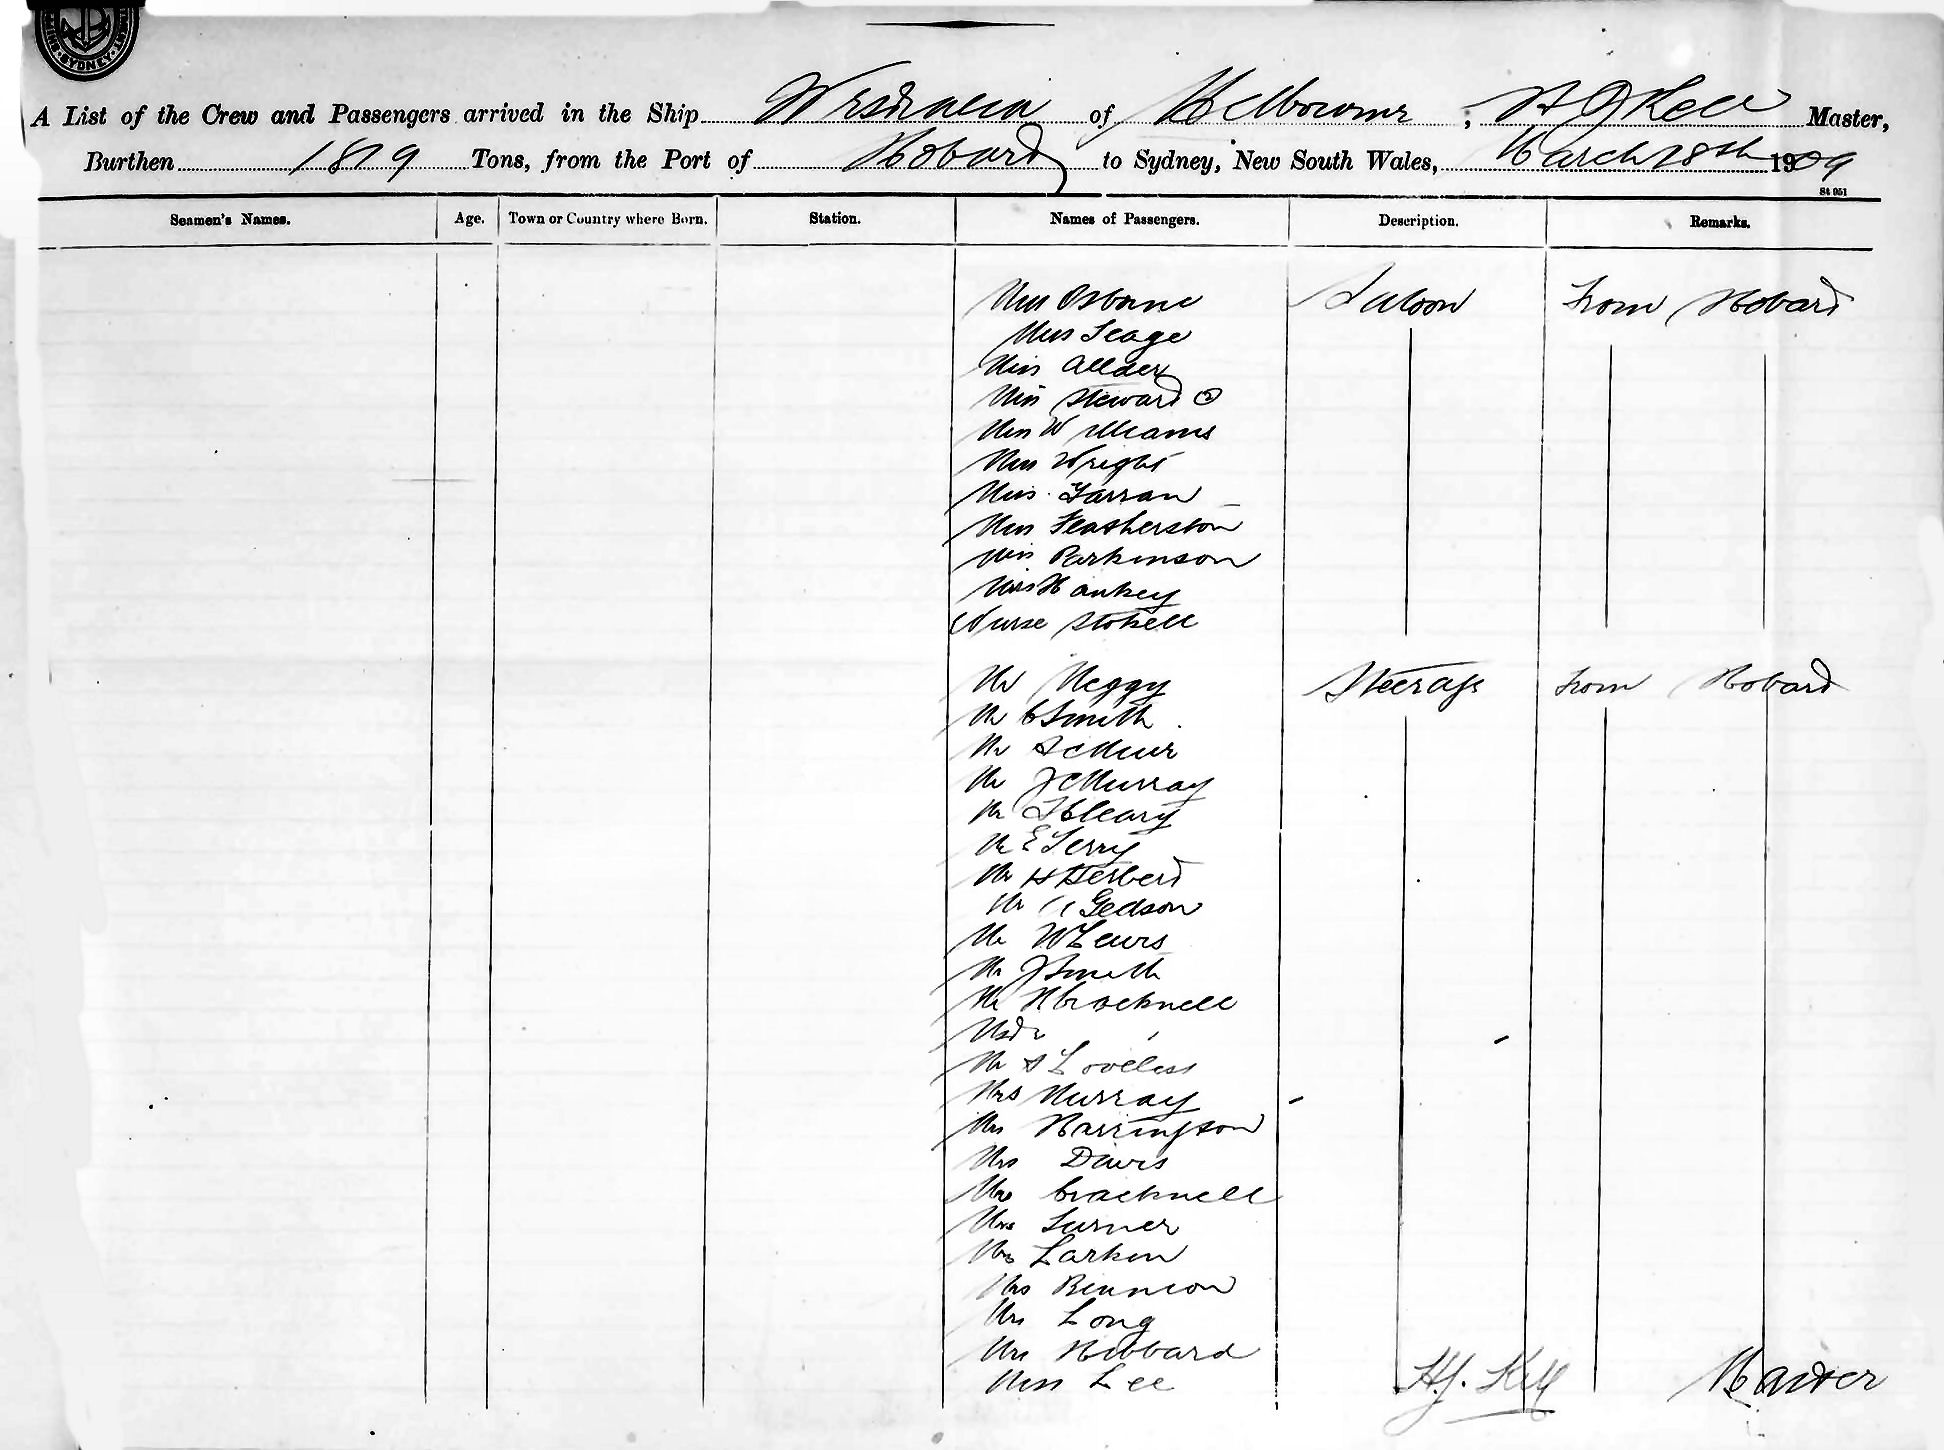 SYDNEY
A List of the Crew and Passengers arrived in the Ship Westralia of Melbourne, H J Kell Master,
Burthen 1819 Tons, from the Port of Hobart to Sydney, New South Wales, March 18th 1909
St 951
Seamen's Names. Age. Town or Country where Born. Station. Names of Passengers. Description. Remarks.
Miss Osborne Saloon From Hobart
Miss Seage
Miss Allder
Miss Steward (2)
Miss Williams
Miss Wright
Miss Farran
Miss Featherston
Miss Parkinson
Miss Hankey
Nurse Stokell
Mr Heggy Steerage From Hobart
Mr C Smith
Mr Muir
Mr J C Murray
Mr Cleary
Mr E Terry
Mr H Herbert
Mr Gedson
Mr W Lewis
Mr J Smith
Mr H Cracknell
Mr S Loveless
Mrs Murray
Mrs Harrington
Mrs Davis
Mrs Cracknell
Mrs Turner
Mrs Larkin
Mrs Bennison
Mrs Long
Mrs Hibbard
Miss Lee
H.J. Kell Master